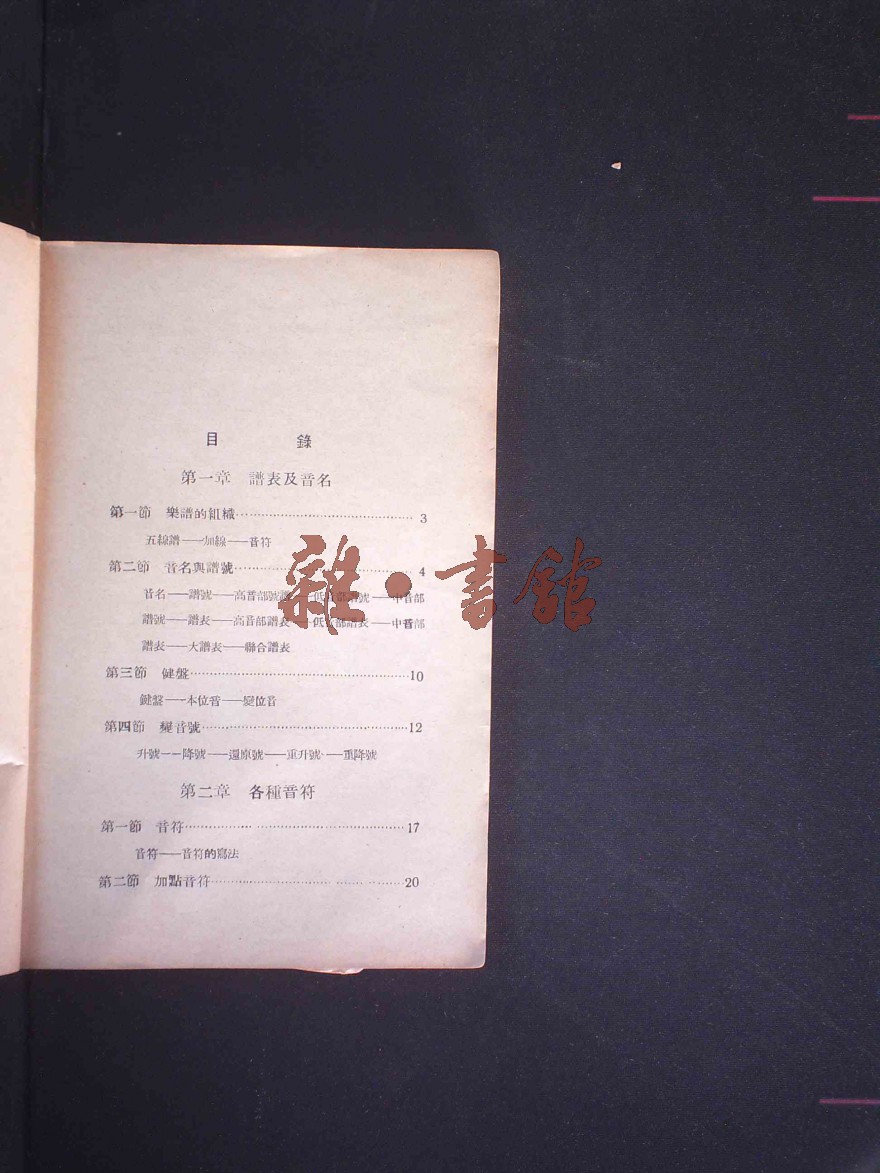 目 錄
第一章 譜表及音名
第一節 樂譜的組織 3
五線譜——加線——音符
第二節 音名與譜號 4
音名——譜號——高音部號譜——低音部譜號——中音部
譜號——譜表——高音部譜表——低音部譜表——中音部
譜表——大譜表——聯合譜表
第三節 健盤 10
鍵盤——本位音——變位音
第四節 變音號 12
升號——降號——還原號——重升號——重降號
第二章 各種音符
第一節 音符 17
音符——音符的寫法
第二節 加點音符 20
雜·書館